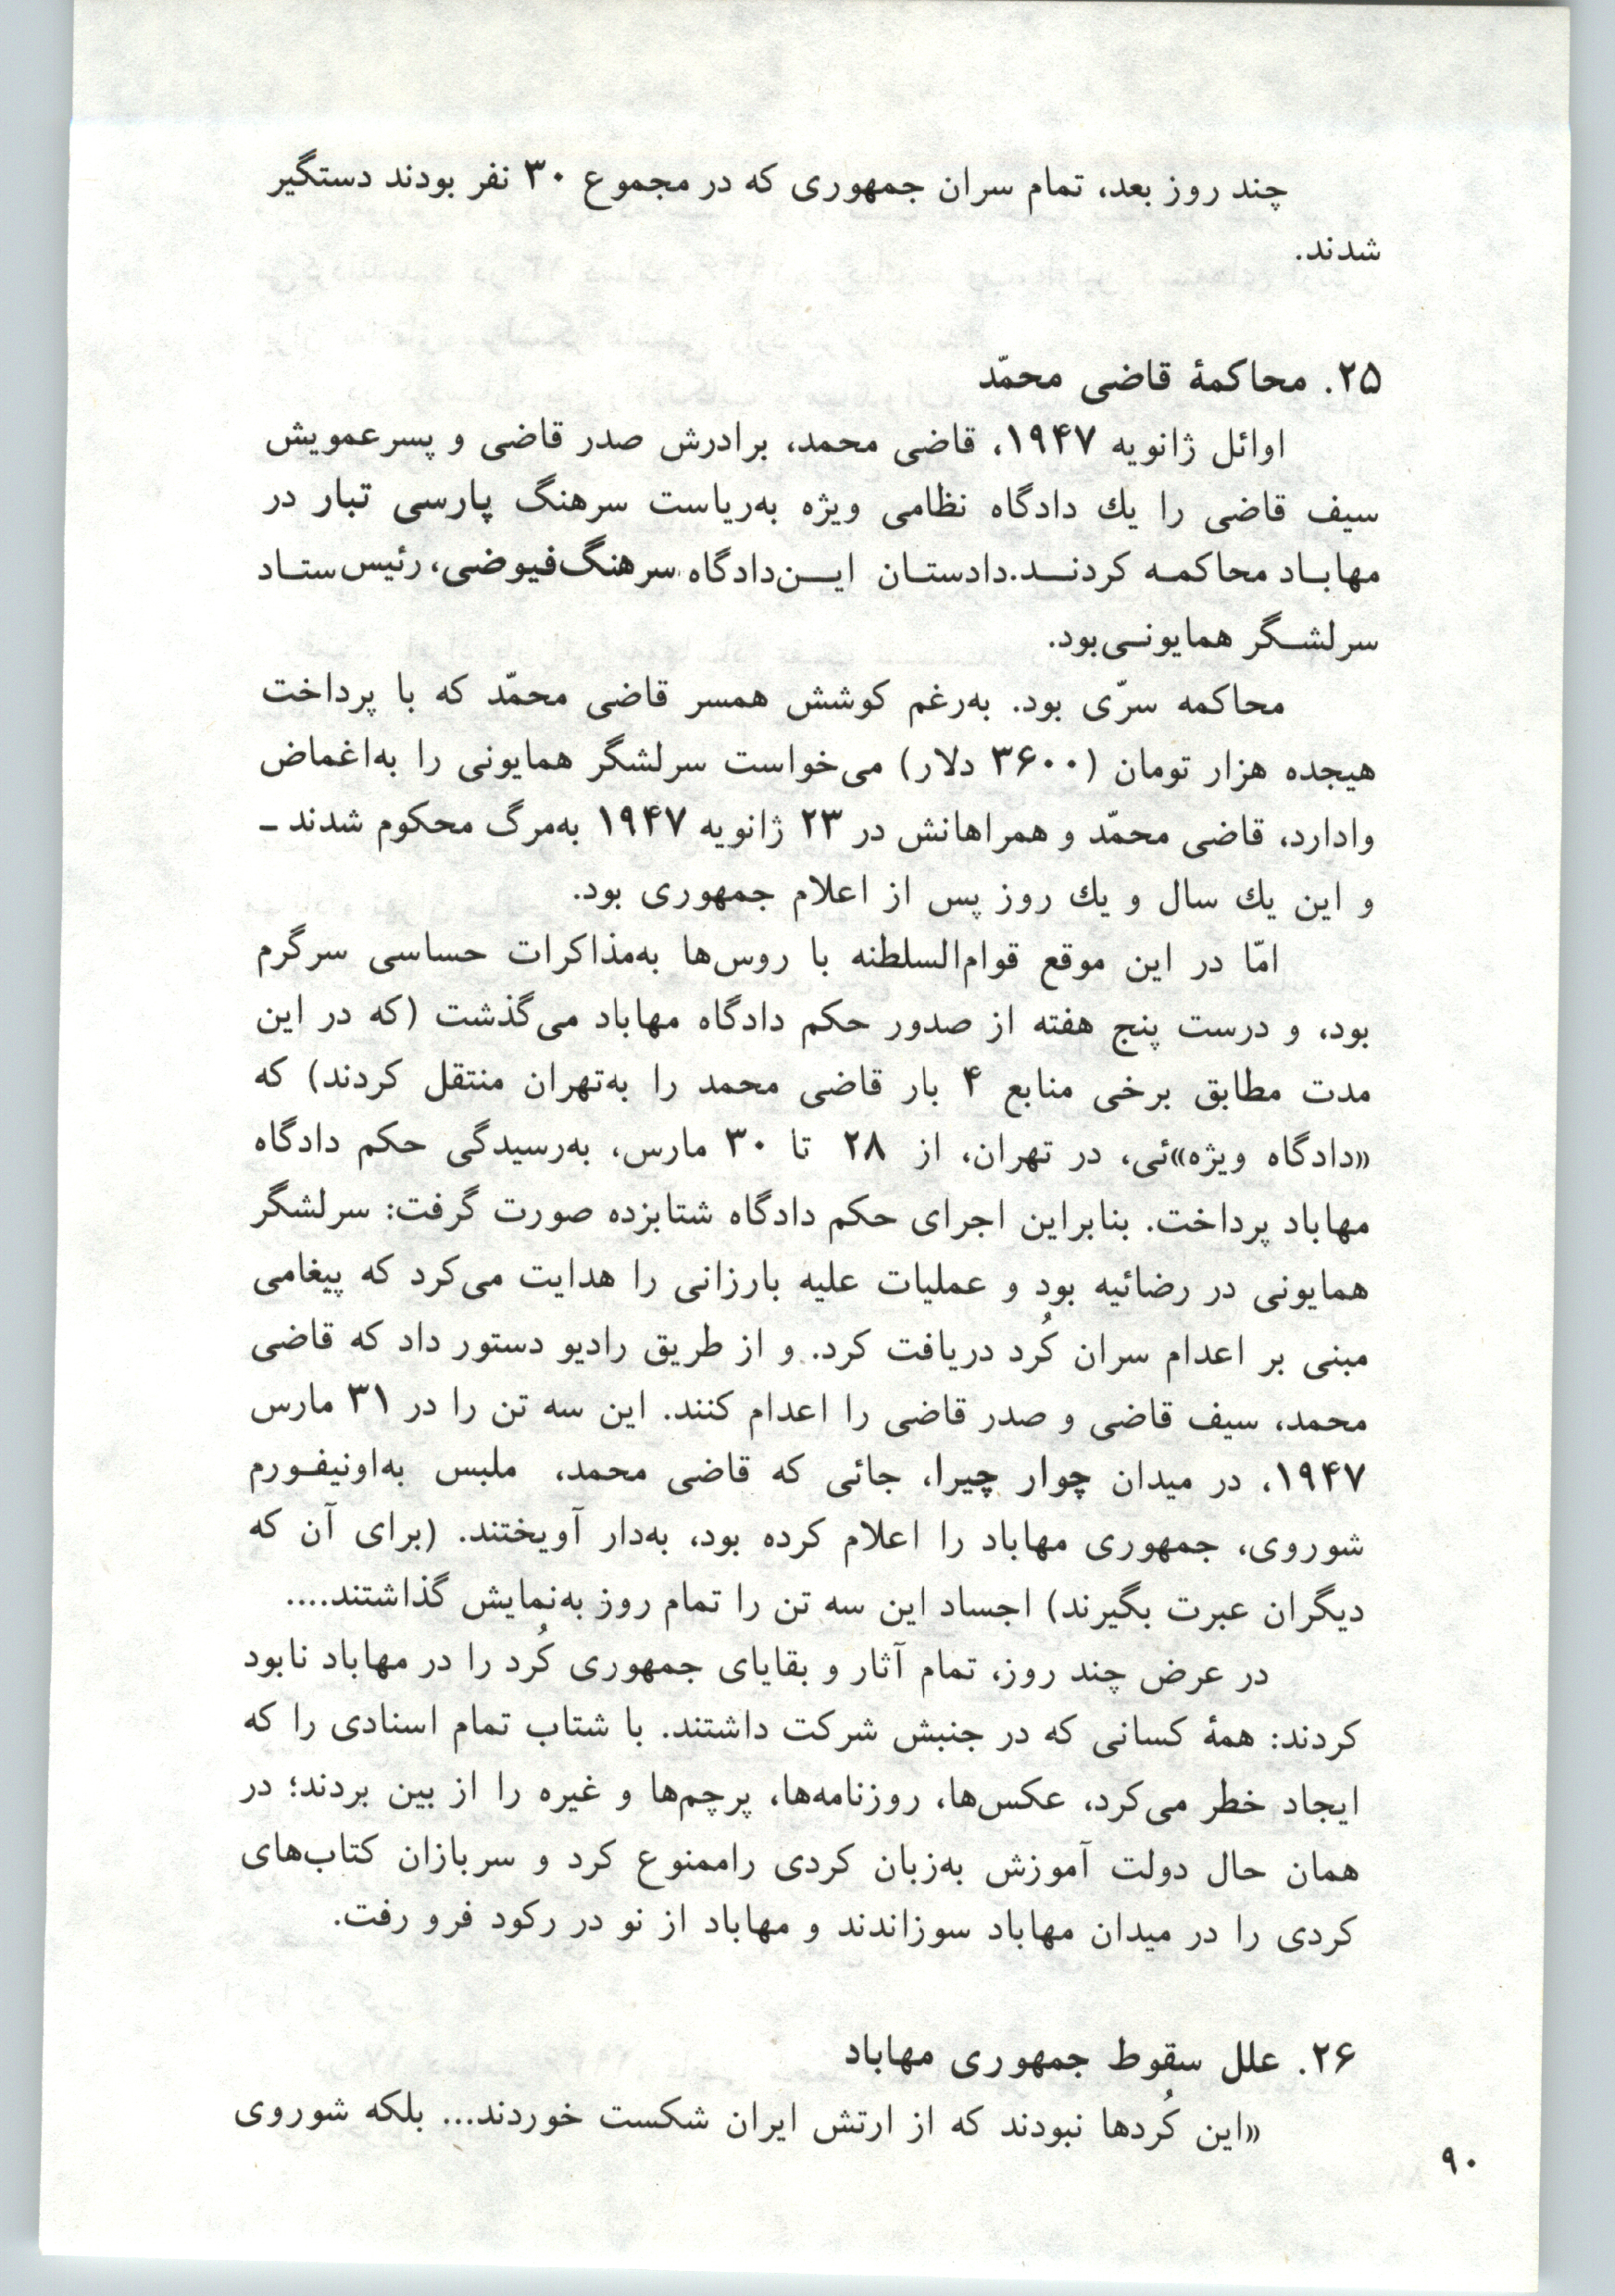 چند روز بعد، تمام سران جمهوری که در مجموع ۳۰ نفر بودند دستگیر
شدند.
۲۵. محاکمهٔ قاضی محمّد
اوائل ژانویه ۱۹۴۷، قاضی محمد، برادرش صدر قاضی و پسرعمویش
سیف قاضی را یك دادگاه نظامی ویژه به‌ریاست سرهنگ پارسی تبار در
مهابـاد محاکمـه کردنــد.دادستـان ایــن‌دادگاه سرهنگ‌فیوضی، رئیس ستـاد
سرلشـگر همایونـی‌بود.
محاکمه سرّی بود. به‌رغم کوشش همسر قاضی محمّد که با پرداخت
هیجده هزار تومان (۳۶۰۰ دلار) می‌خواست سرلشگر همایونی را به‌اغماض
وادارد، قاضی محمّد و همراهانش در ۲۳ ژانویه ۱۹۴۷ به‌مرگ محکوم شدند ـ
و این یك سال و یك روز پس از اعلام جمهوری بود.
امّا در این موقع قوام‌السلطنه با روس‌ها به‌مذاکرات حساسی سرگرم
بود، و درست پنج هفته از صدور حکم دادگاه مهاباد می‌گذشت (که در این
مدت مطابق برخی منابع ۴ بار قاضی محمد را به‌تهران منتقل کردند) که
«دادگاه ویژه»ئی، در تهران، از ۲۸ تا ۳۰ مارس، به‌رسیدگی حکم دادگاه
مهاباد پرداخت. بنابراین اجرای حکم دادگاه شتابزده صورت گرفت: سرلشگر
همایونی در رضائیه بود و عملیات علیه بارزانی را هدایت می‌کرد که پیغامی
مبنی بر اعدام سران کُرد دریافت کرد. و از طریق رادیو دستور داد که قاضی
محمد، سیف قاضی و صدر قاضی را اعدام کنند. این سه تن را در ۳۱ مارس
۱۹۴۷، در میدان چوار چیرا، جائی که قاضی محمد، ملبس به‌اونیفـورم
شوروی، جمهوری مهاباد را اعلام کرده بود، به‌دار آویختند. (برای آن که
دیگران عبرت بگیرند) اجساد این سه تن را تمام روز به‌نمایش گذاشتند....
در عرض چند روز، تمام آثار و بقایای جمهوری کُرد را در مهاباد نابود
کردند: همهٔ کسانی که در جنبش شرکت داشتند. با شتاب تمام اسنادی را که
ایجاد خطر می‌کرد، عکس‌ها، روزنامه‌ها، پرچم‌ها و غیره را از بین بردند؛ در
همان حال دولت آموزش به‌زبان کردی راممنوع کرد و سربازان کتاب‌های
کردی را در میدان مهاباد سوزاندند و مهاباد از نو در رکود فرو رفت.
۲۶. علل سقوط جمهوری مهاباد
«این کُردها نبودند که از ارتش ایران شکست خوردند... بلکه شوروی
۹۰